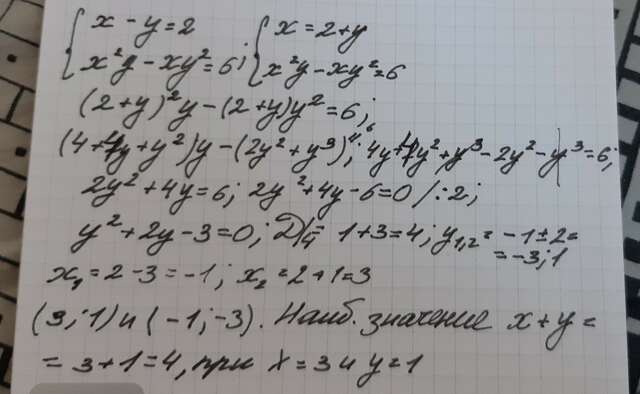 { x - y = 2 { x = 2 + y
{ x²y - xy² = 6; { x²y - xy² = 6
(2+y)²y - (2+y)y² = 6;
(4+4y+y²)y - (2y²+y³)=6; 4y+4y²+y³-2y²-y³=6;
2y²+4y=6; 2y²+4y-6=0 /:2;
y²+2y-3=0; D/4=1+3=4; y₁,₂=-1±2=
=-3;1
x₁=2-3=-1; x₂=2+1=3
(3;1) и (-1;-3). Наиб. значение x+y=
=3+1=4, при x=3 и y=1